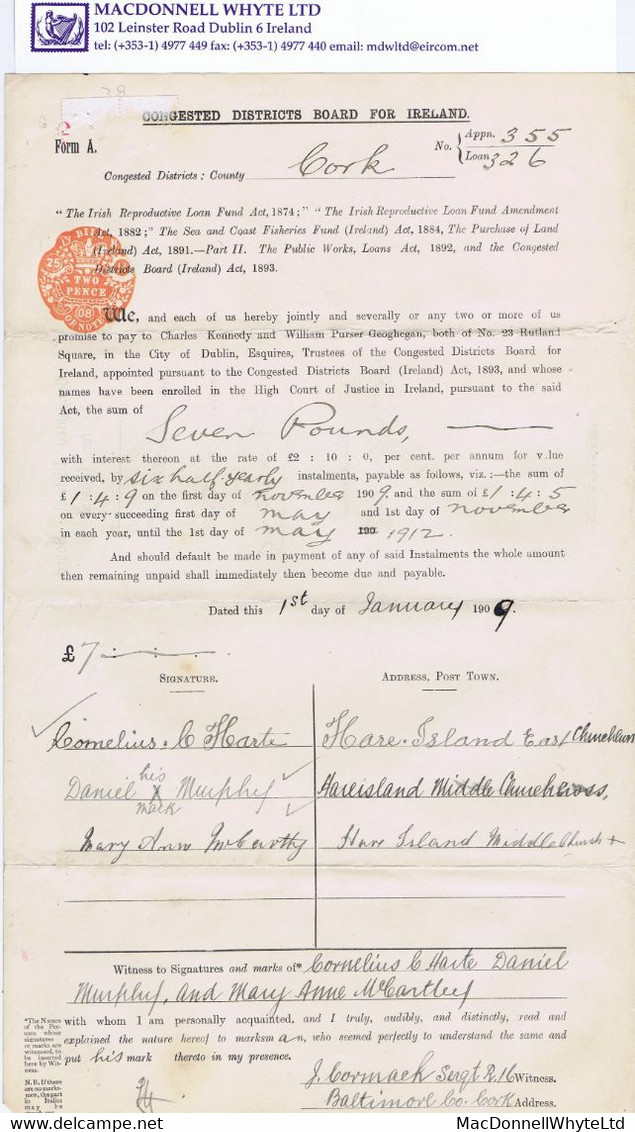 MACDONNELL WHYTE LTD
102 Leinster Road Dublin 6 Ireland
tel: (+353-1) 4977 449 fax: (+353-1) 4977 440 email: mdwltd@eircom.net
CONGESTED DISTRICTS BOARD FOR IRELAND.
Form A.
No. { Appn. 355
Loan 326
Congested Districts: County Cork
"The Irish Reproductive Loan Fund Act, 1874;" "The Irish Reproductive Loan Fund Amendment
Act, 1882;" The Sea and Coast Fisheries Fund (Ireland) Act, 1884, The Purchase of Land
(Ireland) Act, 1891.—Part II. The Public Works, Loans Act, 1892, and the Congested
Districts Board (Ireland) Act, 1893.
25
TWO
PENCE
08
OR NOTE
We, and each of us hereby jointly and severally or any two or more of us
promise to pay to Charles Kennedy and William Purser Geoghegan, both of No. 23 Rutland
Square, in the City of Dublin, Esquires, Trustees of the Congested Districts Board for
Ireland, appointed pursuant to the Congested Districts Board (Ireland) Act, 1893, and whose
names have been enrolled in the High Court of Justice in Ireland, pursuant to the said
Act, the sum of
Seven Pounds,
with interest thereon at the rate of £2 : 10 : 0, per cent. per annum for value
received, by six half-yearly instalments, payable as follows, viz.:—the sum of
£1 : 4 : 9 on the first day of November 1909. and the sum of £1 : 4 : 5
on every succeeding first day of May and 1st day of November
in each year, until the 1st day of May 190 1912.
And should default be made in payment of any of said Instalments the whole amount
then remaining unpaid shall immediately then become due and payable.
Dated this 1st day of January 1909.
£7
SIGNATURE.
ADDRESS, POST TOWN.
Cornelius. C Harte Hare Island East
his
Daniel X Murphy Hareisland Middle Churchcross,
mark
Mary Ann McCarthy Hare Island Middle Church +
Witness to Signatures and marks of* Cornelius C Harte Daniel
Murphy, and Mary Anne McCarthy
with whom I am personally acquainted, and I truly, audibly, and distinctly, read and
explained the nature hereof to marksman, who seemed perfectly to understand the same and
put his mark thereto in my presence.
*The Names
of the Per-
sons whose
signatures
or marks are
witnessed, to
be inserted
here by Wit-
ness.
N.B. If there
are no marks-
men, the part
in Italics
may be
J. Cormack Sergt R.16 Witness.
Baltimore Co. Cork Address.
delcampe.net
MacDonnellWhyteLtd